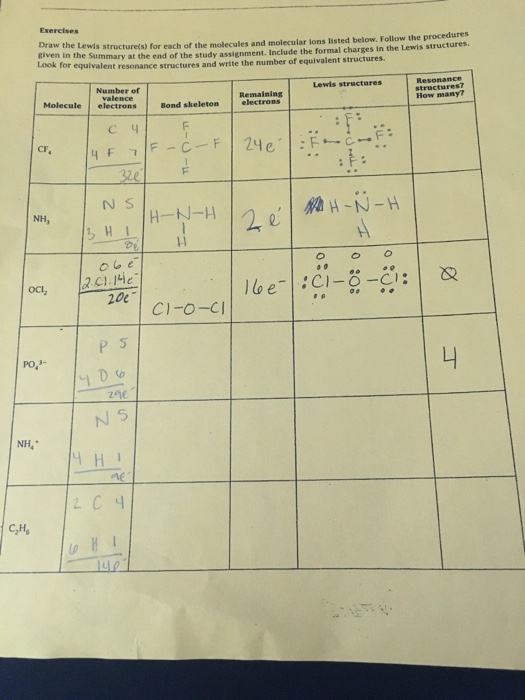 Exercises
Draw the Lewis structure(s) for each of the molecules and molecular ions listed below. Follow the procedures
given in the Summary at the end of the study assignment. Include the formal charges in the Lewis structures.
Look for equivalent resonance structures and write the number of equivalent structures.
Molecule
Number of
valence
electrons
Bond skeleton
Remaining
electrons
Lewis structures
Resonance
structures?
How many?
CF₄
C 4
4 F 7
32e⁻
F
F - C - F
F
24e⁻
:F:
:F - C - F:
:F:
NH₃
N 5
3 H 1
8e⁻
H-N-H
H
2e⁻
H-N-H
H
OCl₂
O 6e⁻
2.Cl.14e⁻
20e⁻
Cl-O-Cl
16e⁻
O O O
:Cl-O-Cl:
0
PO₄³⁻
P 5
4 O 6
29e⁻
4
NH₄⁺
N 5
4 H 1
9e⁻
C₂H₆
2 C 4
6 H 1
14e⁻